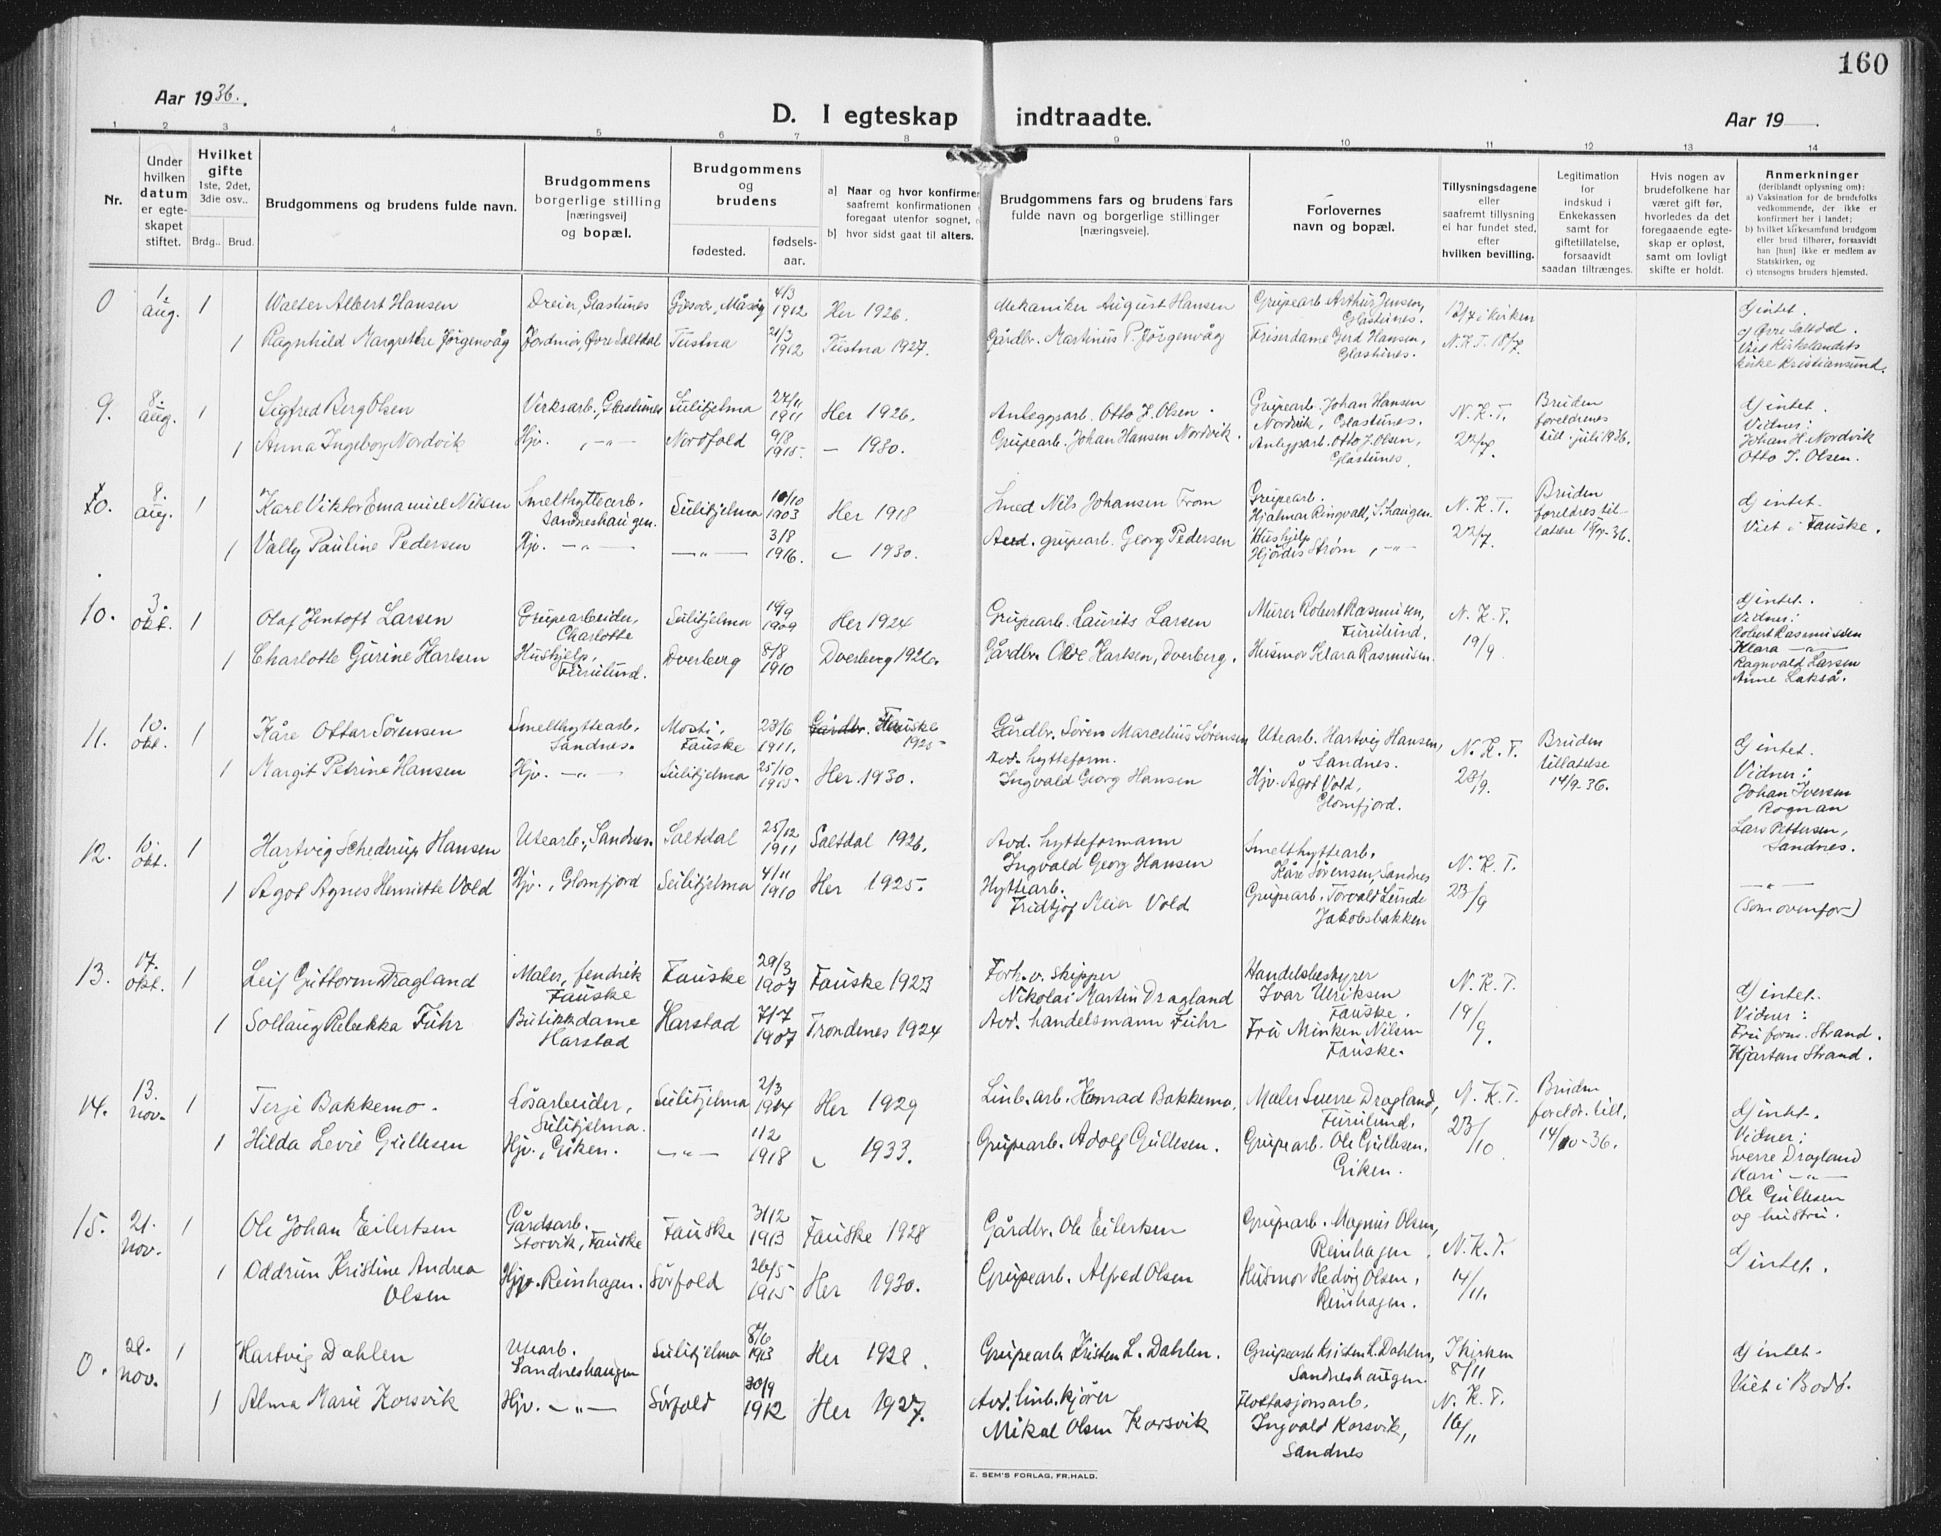 160
Aar 1936.
D. I egteskap indtraadte.
Aar 19
1 2 3 4 5 6 7 8 9 10 11 12 13 14
Nr.
Under hvilken datum er egteskapet stiftet.
Hvilket gifte 1ste, 2det, 3die osv..
Brdg.. Brud.
Brudgommens og brudens fulde navn.
Brudgommens borgerlige stilling [næringsvei] og bopæl.
Brudgommens og brudens
fødested. fødselsaar.
a] Naar og hvor konfirmer
saafremt konfirmationen
foregaat utenfor sognet,
b] hvor sidst gaat til alters.
Brudgommens fars og brudens fars fulde navn og borgerlige stillinger [næringsveie].
Forlovernes navn og bopæl.
Tillysningsdagene eller saafremt tillysning ei har fundet sted, efter hvilken bevilling.
Legitimation for indskud i Enkekassen samt for giftetillatelse, forsaavidt saadan tiltrænges.
Hvis nogen av brudefolkene har været gift før, hvorledes da det foregaaende egteskap er opløst, samt om lovligt skifte er holdt.
Anmerkninger
(deriblandt oplysning om):
a) Vaksination for de brudefolks vedkommende, der ikke er konfirmert her i landet;
b) hvilket kirkesamfund brudgom eller brud tilhører, forsaavidt han [hun] ikke er medlem av Statskirken, og
c) utensogns bruders hjemsted.
0 1. aug. 1 Walter Albert Hansen Dreier, Glastunes Gjesvær, Måsøy 4/3 1912 Her 1926. Mekaniker August Hansen Grubearb. Arthur Jensen, Glastunes. 12/7 i kirken g) intet.
1 Ragnhild Margrethe Jørgenvåg Jordmor, Øvre Saltdal Tustna 21/3 1912 Tustna 1927. Gårdbr. Martinus P. Jørgenvåg Friserdame Gerd Hansen, Glastunes. N.K.T. 18/7. c) Øvre Saltdal. Viet Kirkelandets kirke Kristiansund.
9. 8. aug. 1 Sigfred Berg Olsen Verksarb., Glastunes Sulitjelma 27/11 1911 Her 1926. Anleggsarb. Otto J. Olsen. Grubearb. Johan Hansen Nordvik, Glastunes. N.K.T. Bruden foreldrenes till. juli 1936. g) intet. Vidner:
1 Anna Ingeborg Nordvik Hjv. —"— Nordfold 9/8 1915. — 1930. Grubearb. Johan Hansen Nordvik. Anleggsarb. Otto J. Olsen, Glastunes. 22/7. Johan H. Nordvik Otto J. Olsen.
10. 8. aug. 1 Karl Viktor Emanuel Nilsen Smelthyttearb. Sandneshaugen. Sulitjelma 10/10 1903 Her 1918 Smed Nils Johansen From Grubearb. Hjalmar Ringvall, S.haugen. N.K.T. Bruden foreldres tillatelse g) intet.
1 Vally Pauline Pedersen Hjv. —"— —"— 3/8 1916. " 1930. Avd. grubearb. Georg Pedersen Hushjelp Hjördis Strøm, —"— 22/7. Viet i Fauske.
10. 3. okt. 1 Olaf Jentoft Larsen Grubearbeider, Charlotte Sulitjelma 14/9 1909 Her 1924 Grubearb. Laurits Larsen Murer Robert Rasmussen, Furulund. N.K.T. g) intet. Vidner:
1 Charlotte Gurine Karlsen Hushjelp, Furulund. Dverberg 8/8 1910 Dverberg 1926. Gårdbr. Ole Karlsen, Dverberg. Husmor Klara Rasmussen. 19/9 Robert Rasmussen Klara —"— Ragnvald Larsen Anne Lakså.
11. 10. okt. 1 Kåre Ottar Sørensen Smelthyttearb. Sandnes. Mosti, Fauske 23/6 1911. Fauske 1925 Gårdbr. Søren Marcelius Sørensen Utearb. Hartvig Hansen, Sandnes. N.K.T. Bruden tillatelse 14/9-36. g) intet. Vidner:
1 Margit Petrine Hansen Hjv. —"— Sulitjelma 25/10 1915 Her 1930. Avd. hytteform. Ingvald Georg Hansen Hjv. Agot Vold, Glomfjord. 23/9. Johan Iversen Rognan Lars Pettersen, Sandnes.
12. 10. okt. 1 Hartvig Schederup Hansen Utearb., Sandnes. Saltdal 25/12 1911 Saltdal 1926. Avd. hytteformann Ingvald Georg Hansen Smelthyttearb. Kåre Sørensen, Sandnes N.K.T.
1 Agot Agnes Henriette Vold Hjv., Glomfjord Sulitjelma 4/11 1910 Her 1925. Hyttearb. Fridtjof Meier Vold Grubearb. Torvald Lunde Jakobsbakken 23/9 —"— (som ovenfor)
13. 17. okt. 1 Leif Guttorm Dragland Maler, Fauske Fauske 29/3 1907 Fauske 1923 Forh.v. skipper Nikolai Martin Dragland Handelsbestyrer Ivar Ulriksen Fauske. N.K.T. g) intet. Vidner:
1 Sollaug Rebekka Führ Butikkdame Harstad Harstad 7/7 1907 Trondenes 1924 Avd. handelsmann Führ Fru Minken Nilsen Fauske. 19/9. Fru form. Strand. Kjartan Strand.
14. 13. nov. 1 Terje Bakkemo. Løsarbeider, Sulitjelma. Sulitjelma 2/3 1914 Her 1929 Linb. arb. Konrad Bakkemo. Maler Sverre Dragland, Furulund. N.K.T. Bruden foreldr. till. g) intet. Vidner:
1 Hilda Levie Gullesen Hjv., Giken. —"— 1/12 1918 " 1933. Grubearb. Adolf Gullesen. Grubearb. Ole Gullesen. Giken. 23/10 14/10-36. Sverre Dragland Kari —"— Ole Gullesen og hustru.
15. 21. nov. 1 Ole Johan Eilertsen Gårdsarb. Storvik, Fauske Fauske 31/12 1913 Fauske 1928 Gårdbr. Ole Eilertsen Grubearb. Magnus Olsen, Reinhagen. N.K.T. g) intet.
1 Oddrun Kristine Andrea Olsen Hjv. Reinhagen. Sørfold 26/5 1915 Her 1930. Grubearb. Alfred Olsen Husmor Hedvig Olsen, Reinhagen. 14/11.
0. 28. nov. 1 Hartvig Dahlen Utearb. Sandneshaugen Sulitjelma 8/6 1913 Her 1928. Grubearb. Kristen L. Dahlen. Grubearb. Kristen L. Dahlen, Sandneshaugen. I kirken 8/11 g) intet.
1 Alma Marie Korsvik Hjv. —"— Sørfold 30/9 1912 Her 1927. Avd. linb. kjører Mikal Olsen Korsvik Flottasjonsarb. Ingvald Korsvik, Sandnes N.K.T. 16/11 Viet i Bodø.
E. SEM'S FORLAG, FR.HALD.